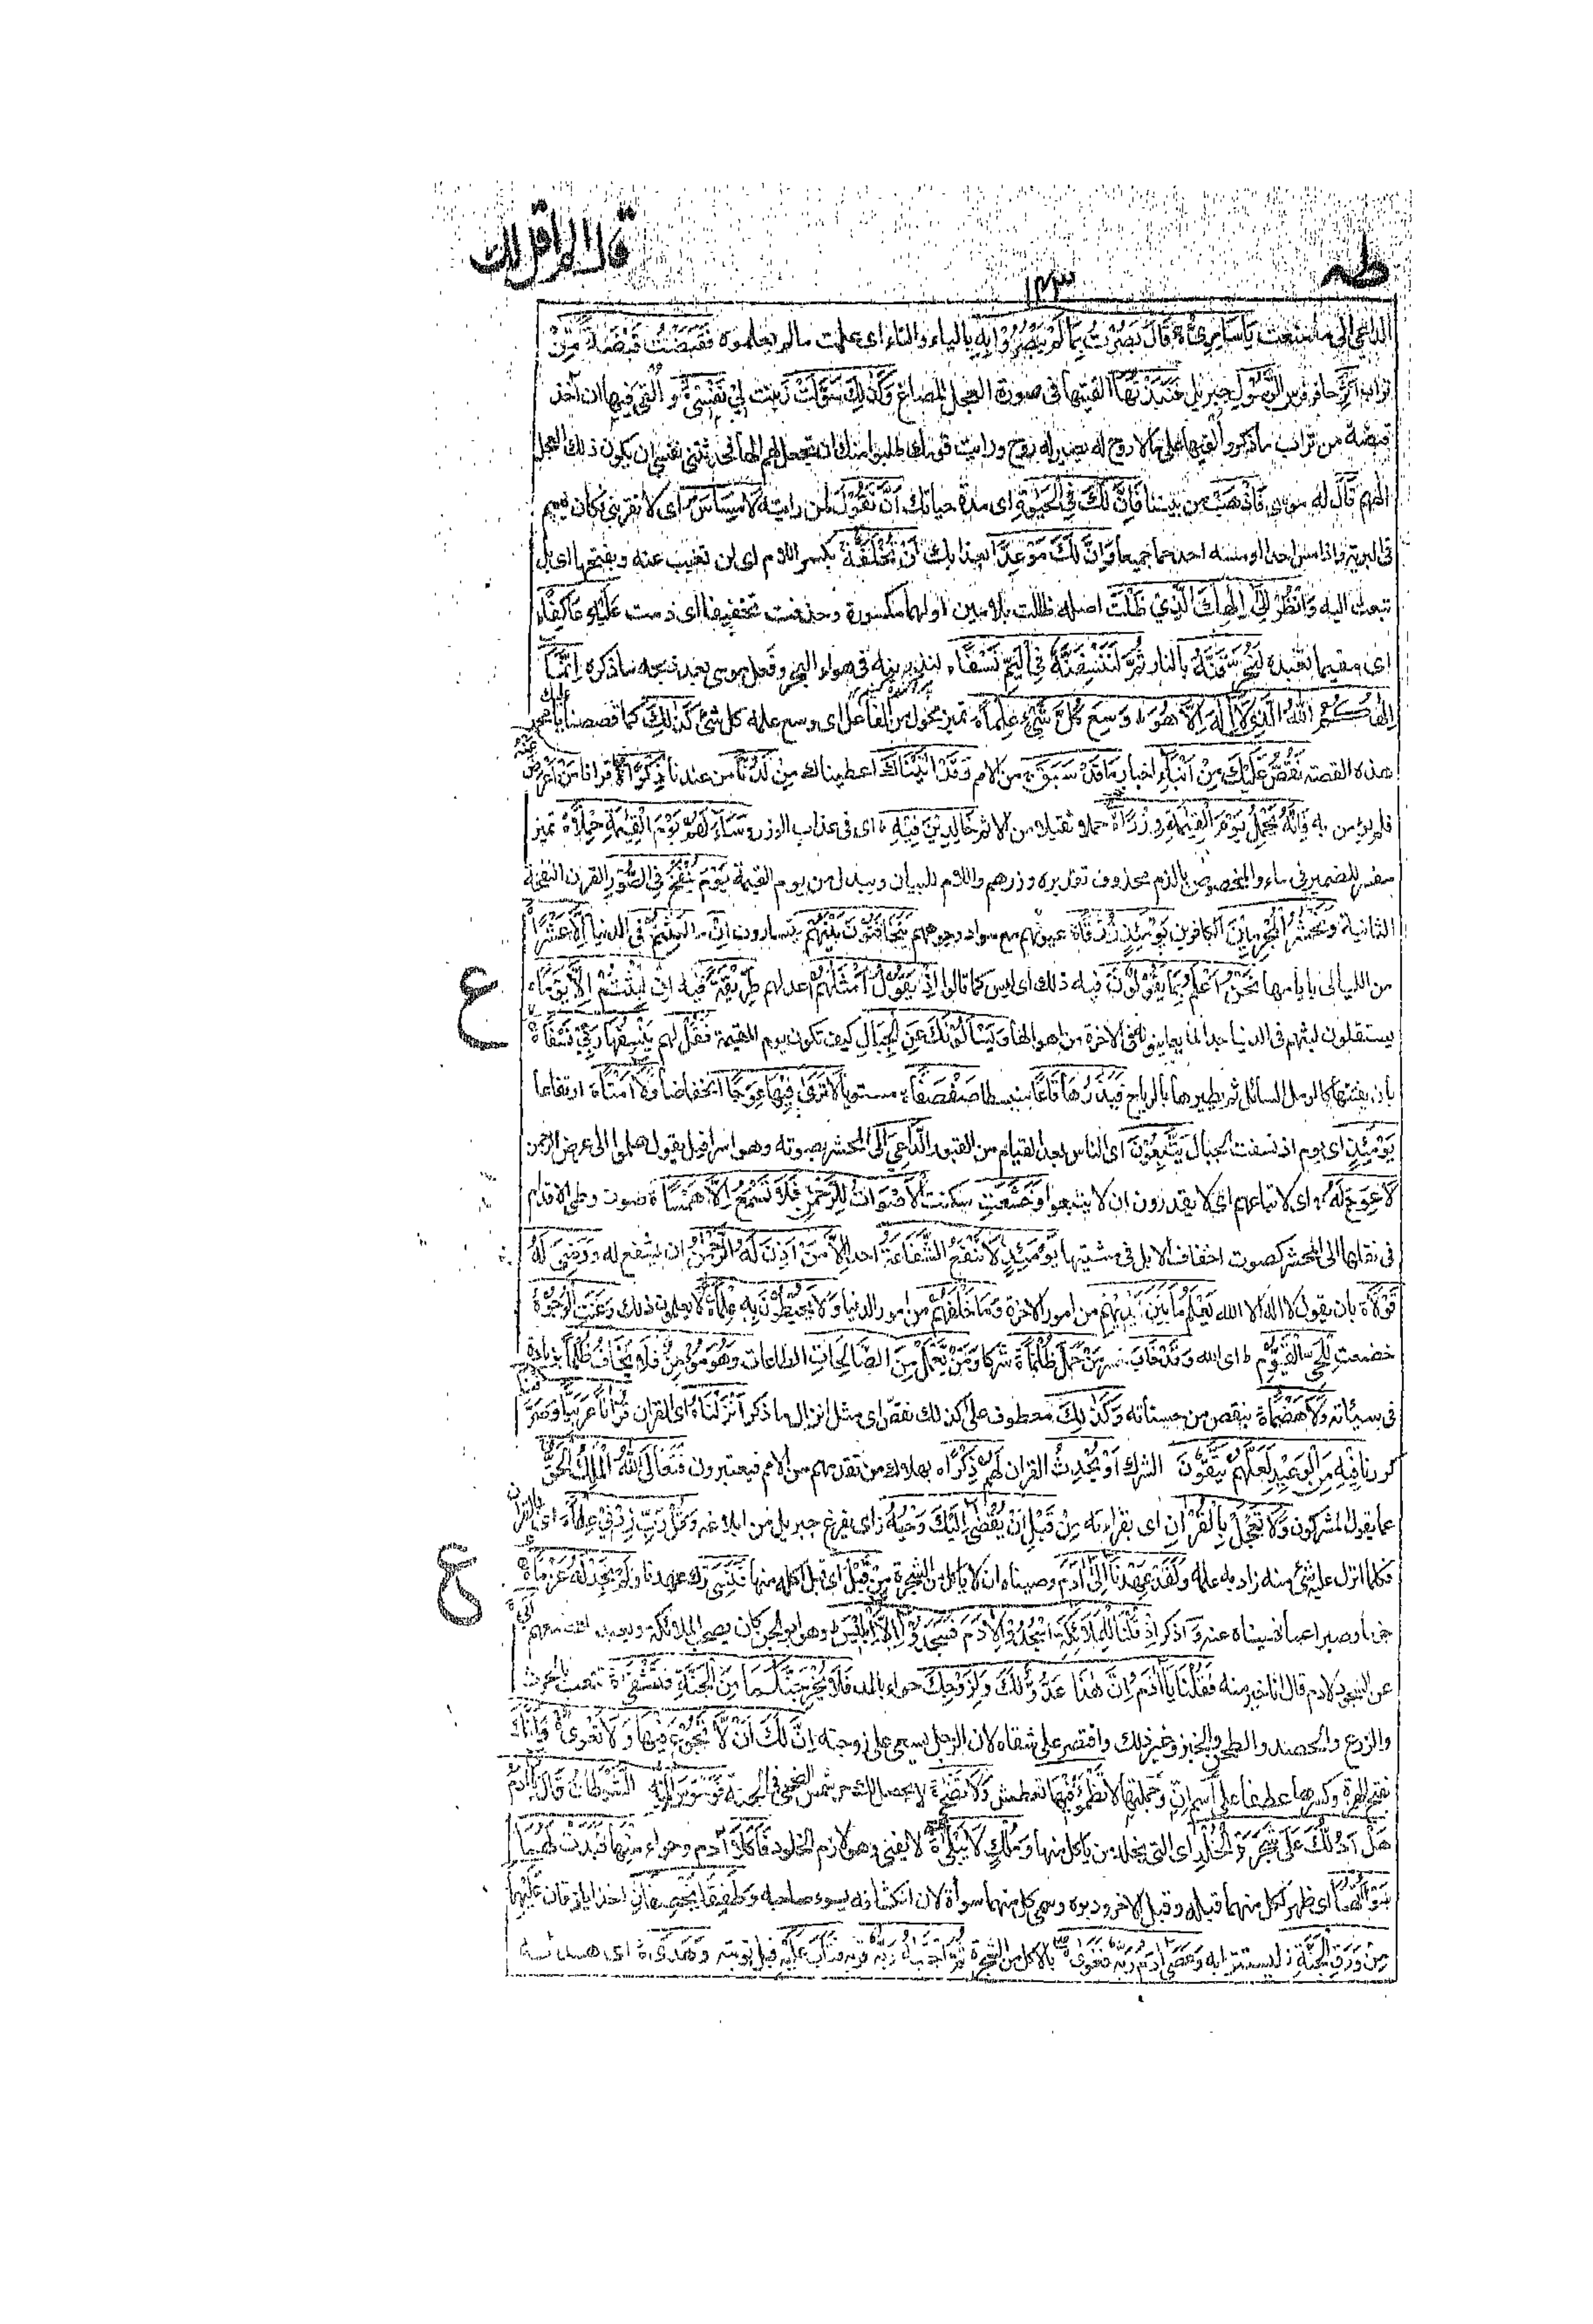 طه
١٤٣
قال الم اقل لك
الداعي الى ما صنعت يَا سَامِرِيُّ قَالَ بَصُرْتُ بِمَا لَمْ يَبْصُرُوْا بِهٖ بالياء والتاء اى علمت ما لم يعلموه فَقَبَضْتُ قَبْضَةً مِّنْ
تراب اَثَرِ حافر فرس الرَّسُوْلِ جبريل فَنَبَذْتُهَا القيتها فى صورة العجل المصاغ وَكَذٰلِكَ سَوَّلَتْ زينت لِيْ نَفْسِيْ و القى فيها ان آخذ
قبضة من تراب ما ذكر والقيها على ما لا روح له يصير له روح ورايت قومك طلبوا منك ان تجعل لهم الها فحدثتنى نفسى ان يكون ذلك العجل
الههم قَالَ له موسى فَاذْهَبْ من بيننا فَاِنَّ لَكَ فِي الْحَيٰوةِ اى مدة حياتك اَنْ تَقُوْلَ لمن رايته لَا مِسَاسَ اى لا تقربنى فكان يهيم
فى البرية واذا مس احدا او مسه احد حما جميعا وَاِنَّ لَكَ مَوْعِدًا لعذابك لَنْ تُخْلَفَهٗ بكسر اللام اى لن تغيب عنه وبفتحها اى بل
تبعث اليه وَانْظُرْ اِلٰى اِلٰهِكَ الَّذِيْ ظَلْتَ اصله ظللت بلامين اولهما مكسورة وحذفت تخفيفا اى دمت عَلَيْهِ عَاكِفًا
اى مقيما تعبده لَنُحَرِّقَنَّهٗ بالنار ثُمَّ لَنَنْسِفَنَّهٗ فِي الْيَمِّ نَسْفًا لنذرينه فى هواء البحر وفعل موسى بعد ذبحه ما ذكره اِنَّمَا
اِلٰهُكُمُ اللّٰهُ الَّذِيْ لَا اِلٰهَ اِلَّا هُوَ وَسِعَ كُلَّ شَيْءٍ عِلْمًا تميز محول من الفاعل اى وسع علمه كل شئ كَذٰلِكَ كما قصصنا عليك يا محمد
هذه القصة نَقُصُّ عَلَيْكَ مِنْ اَنْبَاءِ اخبار مَا قَدْ سَبَقَ من الامم وَقَدْ اٰتَيْنَاكَ اعطيناك مِنْ لَّدُنَّا من عندنا ذِكْرًا قرانا مَنْ اَعْرَضَ عَنْهُ
فلم يؤمن به فَاِنَّهٗ يَحْمِلُ يَوْمَ الْقِيٰمَةِ وِزْرًا حملا ثقيلا من الاثم خَالِدِيْنَ فِيْهِ اى فى عذاب الوزر وَسَاءَ لَهُمْ يَوْمَ الْقِيٰمَةِ حِمْلًا تميز
مفسر للضمير فى ساء والمخصوص بالذم محذوف تقديره وزرهم واللام للبيان ويبدل من يوم القيمة يَوْمَ يُنْفَخُ فِي الصُّوْرِ القرن النفخة
الثانية وَنَحْشُرُ الْمُجْرِمِيْنَ الكافرين يَوْمَئِذٍ زُرْقًا عيونهم مع سواد وجوههم يَتَخَافَتُوْنَ بَيْنَهُمْ يتسارون اِنْ ما لَبِثْتُمْ فى الدنيا اِلَّا عَشْرًا
من الليالى بايامها نَحْنُ اَعْلَمُ بِمَا يَقُوْلُوْنَ فيه ذلك اى ليس كما قالوا اِذْ يَقُوْلُ اَمْثَلُهُمْ اعدلهم طَرِيْقَةً فيه اِنْ لَّبِثْتُمْ اِلَّا يَوْمًا
يستقلون لبثهم فى الدنيا جدا لما يعاينونه فى الاخرة من اهوالها وَيَسْاَلُوْنَكَ عَنِ الْجِبَالِ كيف تكون يوم القيمة فَقُلْ لهم يَنْسِفُهَا رَبِّيْ نَسْفًا
بان يفتتها كالرمل السائل ثم يطيرها بالرياح فَيَذَرُهَا قَاعًا منبسطا صَفْصَفًا مستويا لَا تَرٰى فِيْهَا عِوَجًا انخفاضا وَّلَا اَمْتًا ارتفاعا
يَوْمَئِذٍ اى يوم اذ نسفت الجبال يَتَّبِعُوْنَ اى الناس بعد القيام من القبور الدَّاعِيَ الى المحشر بصوته وهو اسرافيل يقول هلموا الى عرض الرحمن
لَا عِوَجَ لَهٗ اى لاتباعهم اى لا يقدرون ان لا يتبعوا وَخَشَعَتِ سكنت الْاَصْوَاتُ لِلرَّحْمٰنِ فَلَا تَسْمَعُ اِلَّا هَمْسًا صوت وطى الاقدام
فى نقلها الى المحشر كصوت اخفاف الابل فى مشيتها يَوْمَئِذٍ لَّا تَنْفَعُ الشَّفَاعَةُ احدا اِلَّا مَنْ اَذِنَ لَهُ الرَّحْمٰنُ ان يشفع له وَرَضِيَ لَهٗ
قَوْلًا بان يقول لا اله الا الله يَعْلَمُ مَا بَيْنَ اَيْدِيْهِمْ من امور الاخرة وَمَا خَلْفَهُمْ من امور الدنيا وَلَا يُحِيْطُوْنَ بِهٖ عِلْمًا لا يعلمون ذلك وَعَنَتِ الْوُجُوْهُ
خضعت لِلْحَيِّ الْقَيُّوْمِ اى الله وَقَدْ خَابَ خسر مَنْ حَمَلَ ظُلْمًا شركا وَمَنْ يَّعْمَلْ مِنَ الصَّالِحَاتِ الطاعات وَهُوَ مُؤْمِنٌ فَلَا يَخَافُ ظُلْمًا بزيادة
فى سيئاته وَّلَا هَضْمًا بنقص من حسناته وَكَذٰلِكَ معطوف على كذلك نقص اى مثل انزال ما ذكر اَنْزَلْنَاهُ اى القران قُرْاٰنًا عَرَبِيًّا وَّصَرَّفْنَا
كررنا فِيْهِ مِنَ الْوَعِيْدِ لَعَلَّهُمْ يَتَّقُوْنَ الشرك اَوْ يُحْدِثُ القران لَهُمْ ذِكْرًا بهلاك من تقدمهم من الامم فيعتبرون فَتَعَالَى اللّٰهُ الْمَلِكُ الْحَقُّ
عما يقول المشركون وَلَا تَعْجَلْ بِالْقُرْاٰنِ اى بقراءته مِنْ قَبْلِ اَنْ يُّقْضٰى اِلَيْكَ وَحْيُهٗ اى يفرغ جبريل من ابلاغه وَقُلْ رَّبِّ زِدْنِيْ عِلْمًا اى بالقران
فكلما انزل عليه شئ منه زاد به علمه وَلَقَدْ عَهِدْنَا اِلٰى اٰدَمَ وصيناه ان لا ياكل من الشجرة مِنْ قَبْلُ اى قبل اكله منها فَنَسِيَ ترك عهدنا وَلَمْ نَجِدْ لَهٗ عَزْمًا
حزما وصبرا عما نهيناه عنه وَ اذكر اِذْ قُلْنَا لِلْمَلَائِكَةِ اسْجُدُوْا لِاٰدَمَ فَسَجَدُوْا اِلَّا اِبْلِيْسَ وهو ابو الجن كان يصحب الملائكة ويعبد الله معهم اَبٰى
عن السجود لادم قال انا خير منه فَقُلْنَا يَا اٰدَمُ اِنَّ هٰذَا عَدُوٌّ لَّكَ وَلِزَوْجِكَ حواء بالمد فَلَا يُخْرِجَنَّكُمَا مِنَ الْجَنَّةِ فَتَشْقٰى تتعب بالحرث
والزرع والحصد والطحن والخبز وغير ذلك واقتصر على شقاه لان الرجل يسعى على زوجته اِنَّ لَكَ اَنْ لَّا تَجُوْعَ فِيْهَا وَلَا تَعْرٰى وَاَنَّكَ
بفتح الهمزة وكسرها عطف على اسم ان وجملتها لَا تَظْمَؤُ فِيْهَا تعطش وَلَا تَضْحٰى لا يحصل لك حر شمس الضحى فى الجنة فَوَسْوَسَ اِلَيْهِ الشَّيْطَانُ قَالَ يَا اٰدَمُ
هَلْ اَدُلُّكَ عَلٰى شَجَرَةِ الْخُلْدِ اى التى يخلد من ياكل منها وَمُلْكٍ لَّا يَبْلٰى لا يفنى وهو لازم الخلود فَاَكَلَا آدم وحواء مِنْهَا فَبَدَتْ لَهُمَا
سَوْاٰتُهُمَا اى ظهر لكل منهما قبله وقبل الاخر ودبره وسمى كل منهما سوأة لان انكشافه يسوء صاحبه وَطَفِقَا يَخْصِفَانِ اخذا يلزقان عَلَيْهِمَا
مِنْ وَّرَقِ الْجَنَّةِ ليستترا به وَعَصٰى اٰدَمُ رَبَّهٗ فَغَوٰى بالاكل من الشجرة ثُمَّ اجْتَبَاهُ رَبُّهٗ قربه فَتَابَ عَلَيْهِ قبل توبته وَهَدٰى اى هداه
ع
ع